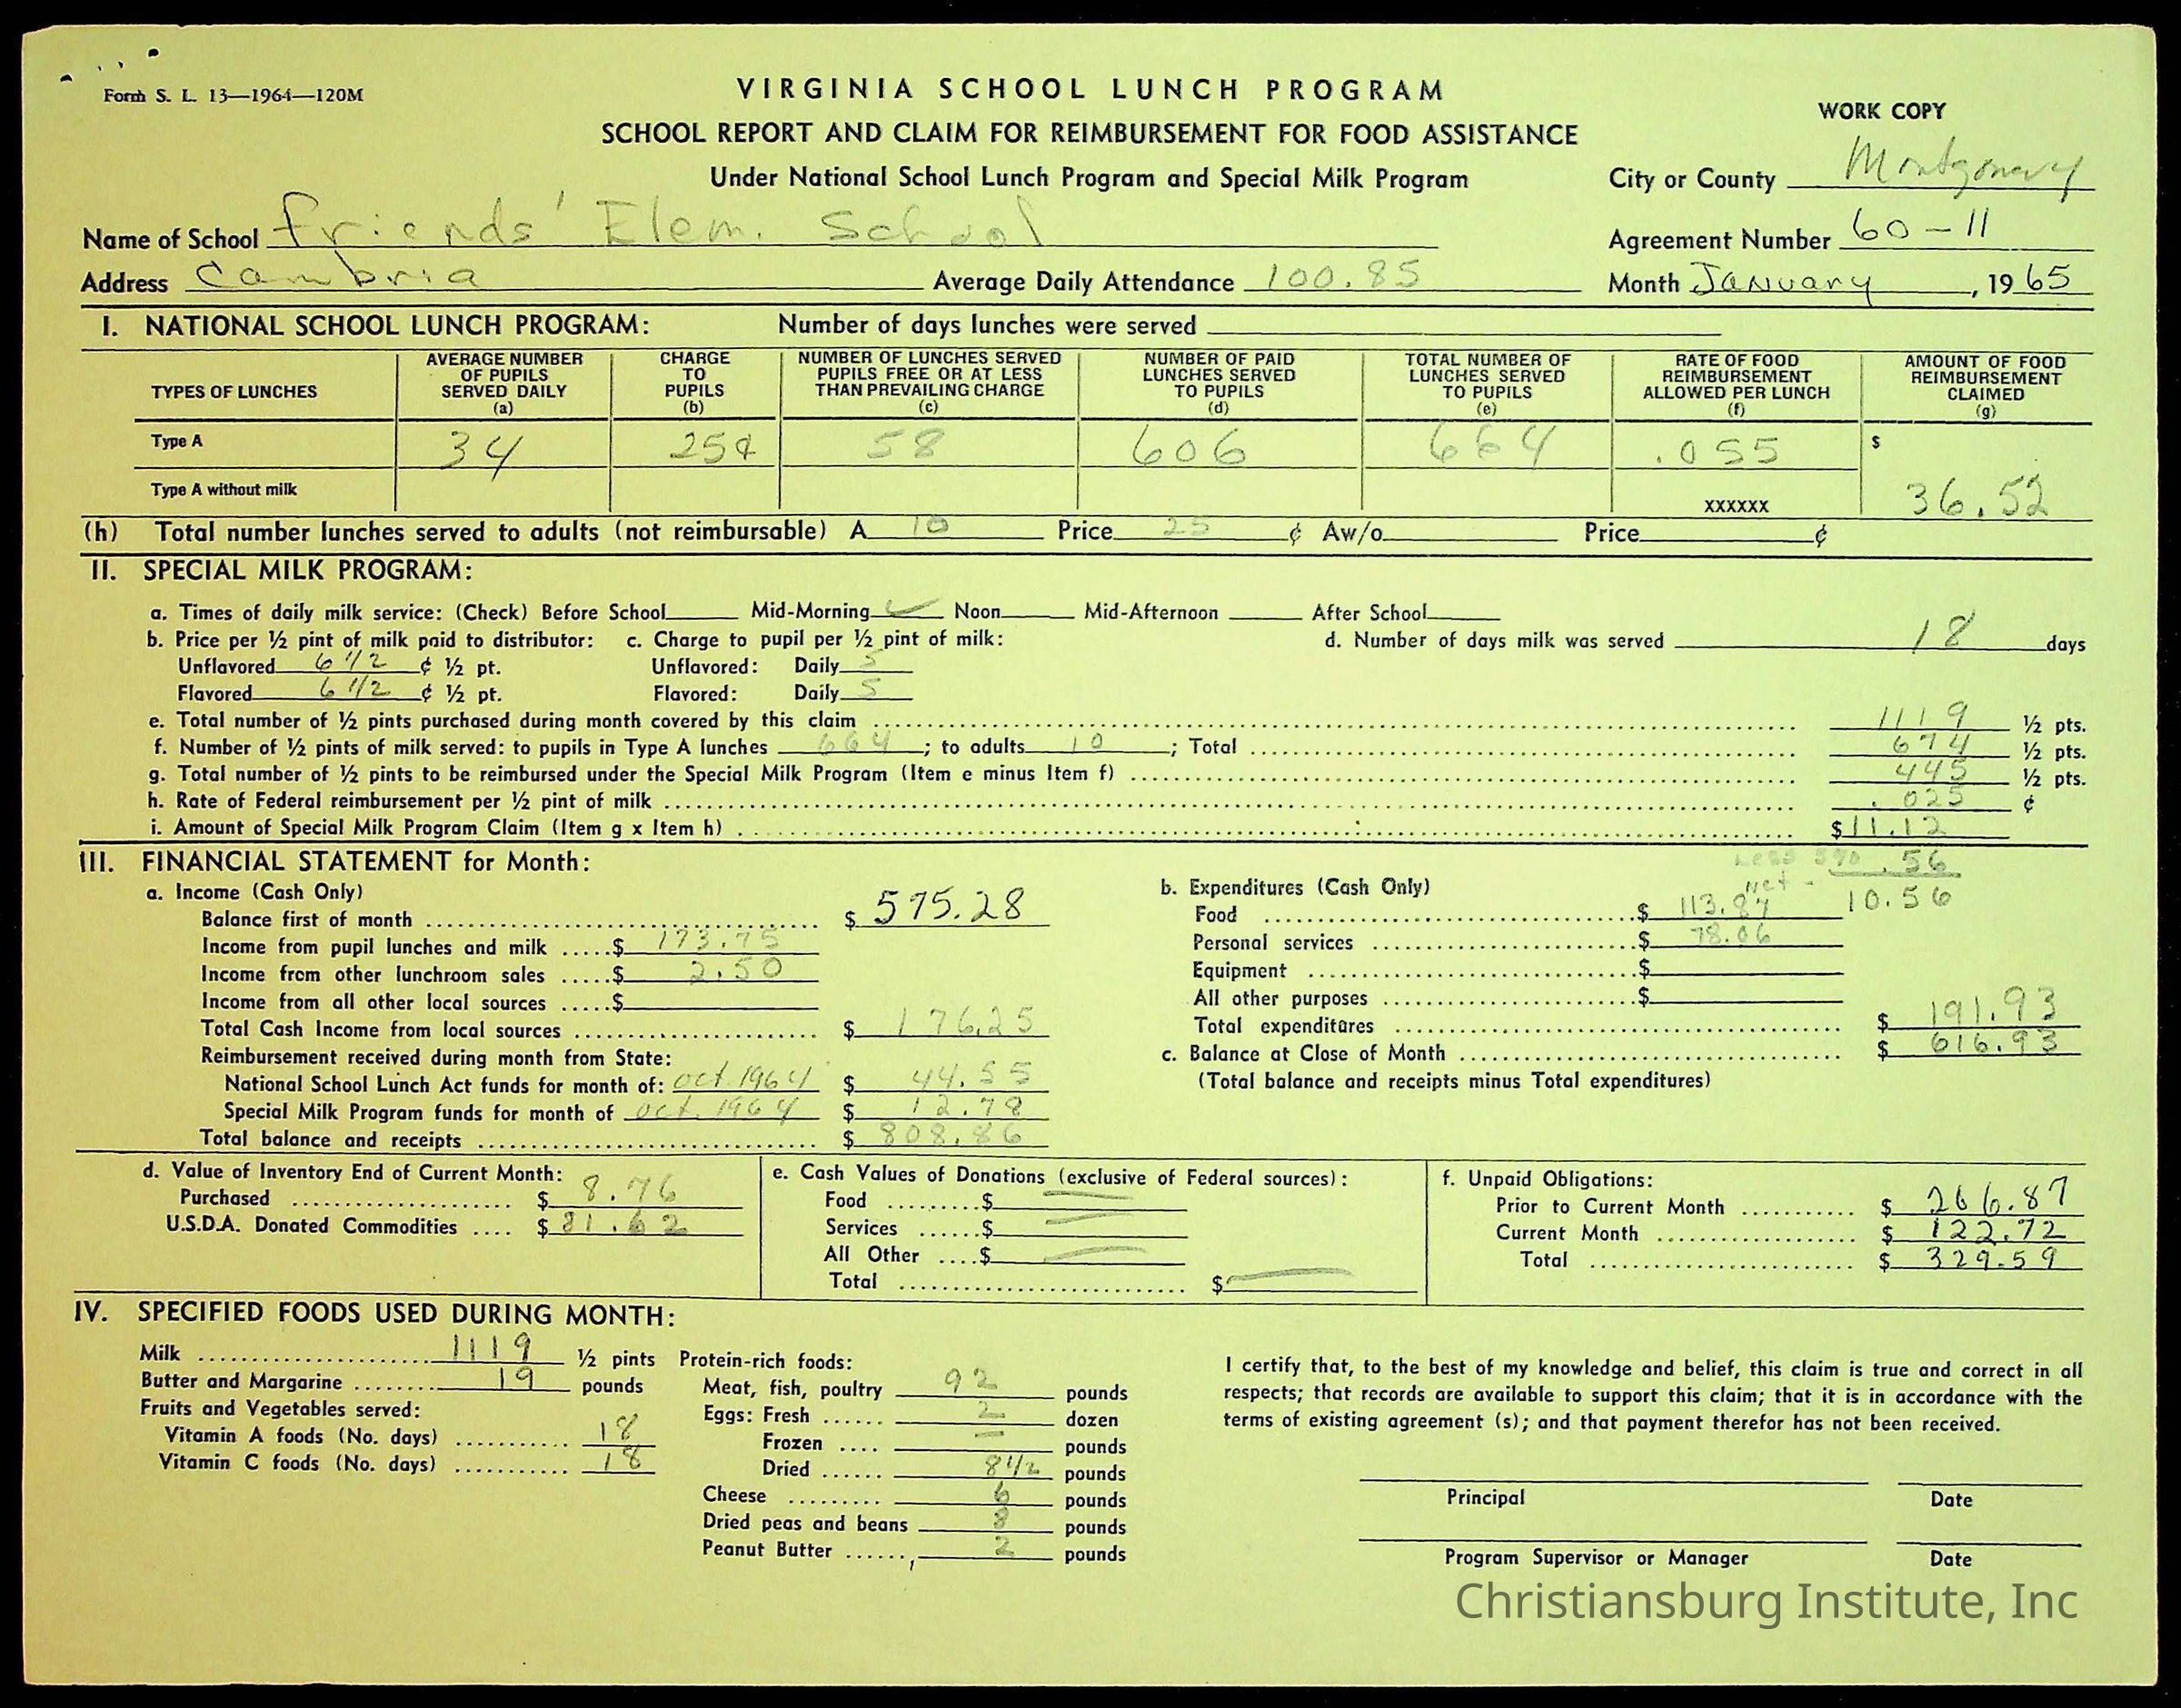 Form S. L. 13—1964—120M
VIRGINIA SCHOOL LUNCH PROGRAM
WORK COPY
SCHOOL REPORT AND CLAIM FOR REIMBURSEMENT FOR FOOD ASSISTANCE
Under National School Lunch Program and Special Milk Program
City or County Montgomery
Name of School Friends' Elem. School
Agreement Number 60-11
Address Cambria Average Daily Attendance 100.85 Month January, 1965
I. NATIONAL SCHOOL LUNCH PROGRAM: Number of days lunches were served
TYPES OF LUNCHES
AVERAGE NUMBER OF PUPILS SERVED DAILY (a)
CHARGE TO PUPILS (b)
NUMBER OF LUNCHES SERVED PUPILS FREE OR AT LESS THAN PREVAILING CHARGE (c)
NUMBER OF PAID LUNCHES SERVED TO PUPILS (d)
TOTAL NUMBER OF LUNCHES SERVED TO PUPILS (e)
RATE OF FOOD REIMBURSEMENT ALLOWED PER LUNCH (f)
AMOUNT OF FOOD REIMBURSEMENT CLAIMED (g)
Type A 34 25¢ 58 606 664 .055 $
Type A without milk XXXXXX 36.52
(h) Total number lunches served to adults (not reimbursable) A 10 Price 25 ¢ Aw/o Price ¢
II. SPECIAL MILK PROGRAM:
a. Times of daily milk service: (Check) Before School Mid-Morning ✓ Noon Mid-Afternoon After School
b. Price per ½ pint of milk paid to distributor: c. Charge to pupil per ½ pint of milk: d. Number of days milk was served 18 days
Unflavored 6 1/2 ¢ ½ pt. Unflavored: Daily 5
Flavored 6 1/2 ¢ ½ pt. Flavored: Daily 5
e. Total number of ½ pints purchased during month covered by this claim 1119 ½ pts.
f. Number of ½ pints of milk served: to pupils in Type A lunches 664; to adults 10; Total 674 ½ pts.
g. Total number of ½ pints to be reimbursed under the Special Milk Program (Item e minus Item f) 445 ½ pts.
h. Rate of Federal reimbursement per ½ pint of milk .025 ¢
i. Amount of Special Milk Program Claim (Item g x Item h) $11.12
Less 5% .56
net - 10.56
III. FINANCIAL STATEMENT for Month:
a. Income (Cash Only)
Balance first of month $ 575.28
Income from pupil lunches and milk $ 173.75
Income from other lunchroom sales $ 2.50
Income from all other local sources $
Total Cash Income from local sources $ 176.25
Reimbursement received during month from State:
National School Lunch Act funds for month of: Oct. 1964 $ 44.55
Special Milk Program funds for month of Oct. 1964 $ 12.78
Total balance and receipts $ 808.86
b. Expenditures (Cash Only)
Food $ 113.87
Personal services $ 78.06
Equipment $
All other purposes $
Total expenditures $ 191.93
c. Balance at Close of Month $ 616.93
(Total balance and receipts minus Total expenditures)
d. Value of Inventory End of Current Month:
Purchased $ 8.76
U.S.D.A. Donated Commodities $ 81.62
e. Cash Values of Donations (exclusive of Federal sources):
Food $
Services $
All Other $
Total $
f. Unpaid Obligations:
Prior to Current Month $ 266.87
Current Month $ 122.72
Total $ 329.59
IV. SPECIFIED FOODS USED DURING MONTH:
Milk 1119 ½ pints
Butter and Margarine 19 pounds
Fruits and Vegetables served:
Vitamin A foods (No. days) 18
Vitamin C foods (No. days) 18
Protein-rich foods:
Meat, fish, poultry 92 pounds
Eggs: Fresh 2 dozen
Frozen — pounds
Dried 8 1/2 pounds
Cheese 6 pounds
Dried peas and beans 8 pounds
Peanut Butter 2 pounds
I certify that, to the best of my knowledge and belief, this claim is true and correct in all
respects; that records are available to support this claim; that it is in accordance with the
terms of existing agreement (s); and that payment therefor has not been received.
Principal Date
Program Supervisor or Manager Date
Christiansburg Institute, Inc